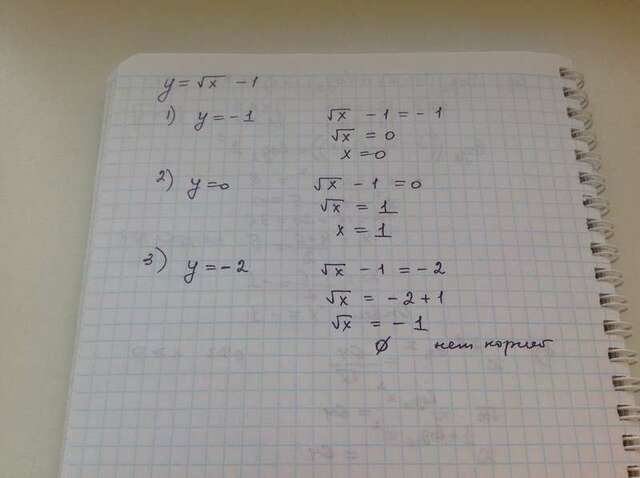 y = √x - 1
1) y = -1 √x - 1 = -1
√x = 0
x = 0
2) y = 0 √x - 1 = 0
√x = 1
x = 1
3) y = -2 √x - 1 = -2
√x = -2 + 1
√x = -1
∅ нет корней